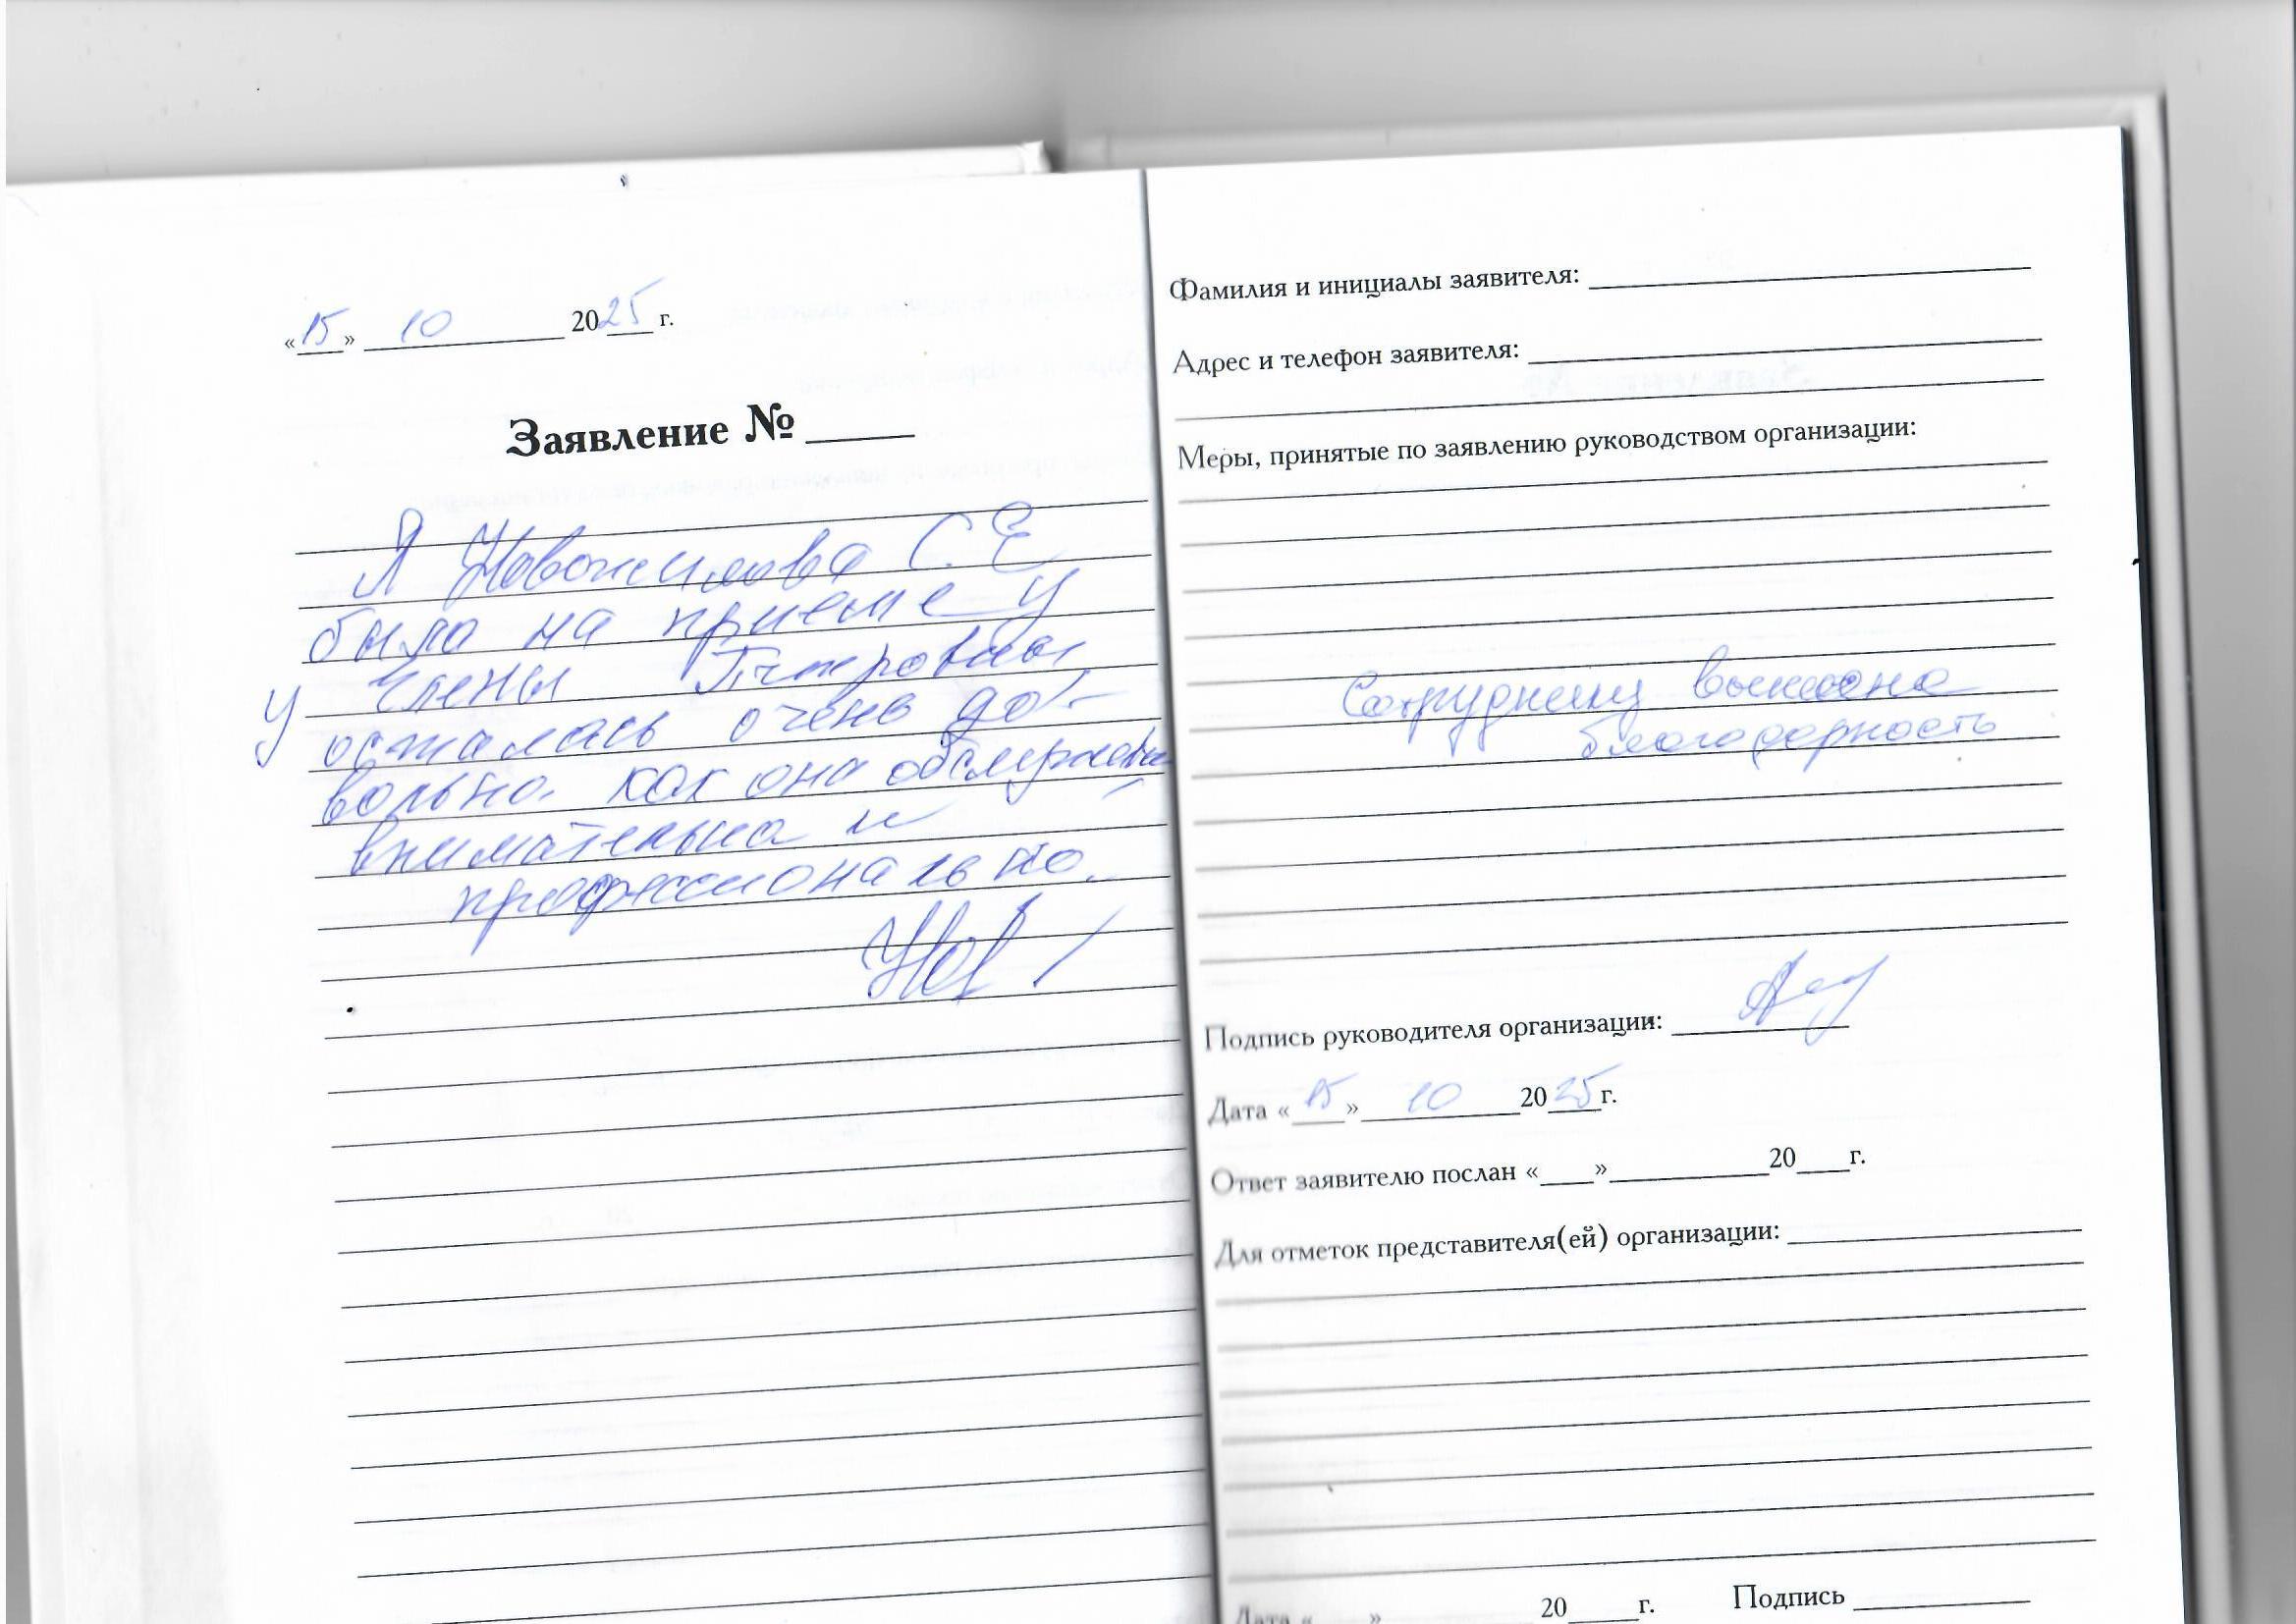 «15» 10 2025 г.
Заявление № ____
Я Новожилова С.Е
была на приеме у
у Елены Петровны
осталась очень до-
вольна. как она обслужила
внимательна и
професионально.
Нов /
Фамилия и инициалы заявителя:
Адрес и телефон заявителя:
Меры, принятые по заявлению руководством организации:
Сотруднику вынесена
благодарность
Подпись руководителя организации:
Дата «15» 10 2025г.
Ответ заявителю послан «____»____________20____г.
Для отметок представителя(ей) организации:
Дата «____»____________20____г. Подпись